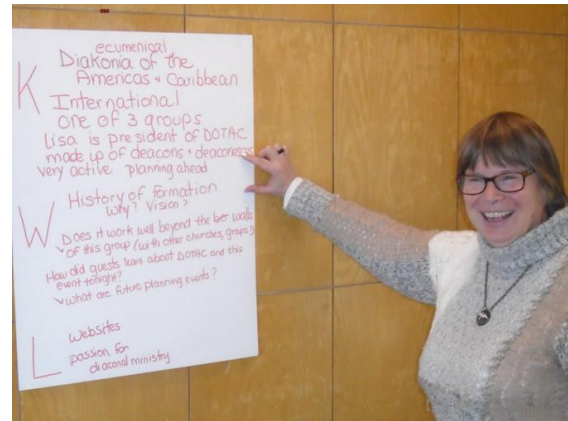 ecumenical
K Diakonia of the
Americas + Caribbean
International
one of 3 groups
Lisa is president of DOTAC
made up of deacons + deaconesses
very active planning ahead
W History of Formation
Why? Vision?
Does it work well beyond the walls
✓ of this group (with other churches, groups)?
How did guests learn about DOTAC and this
event tonight?
✓ What are future planning events?
L Websites
passion for
diaconal ministry